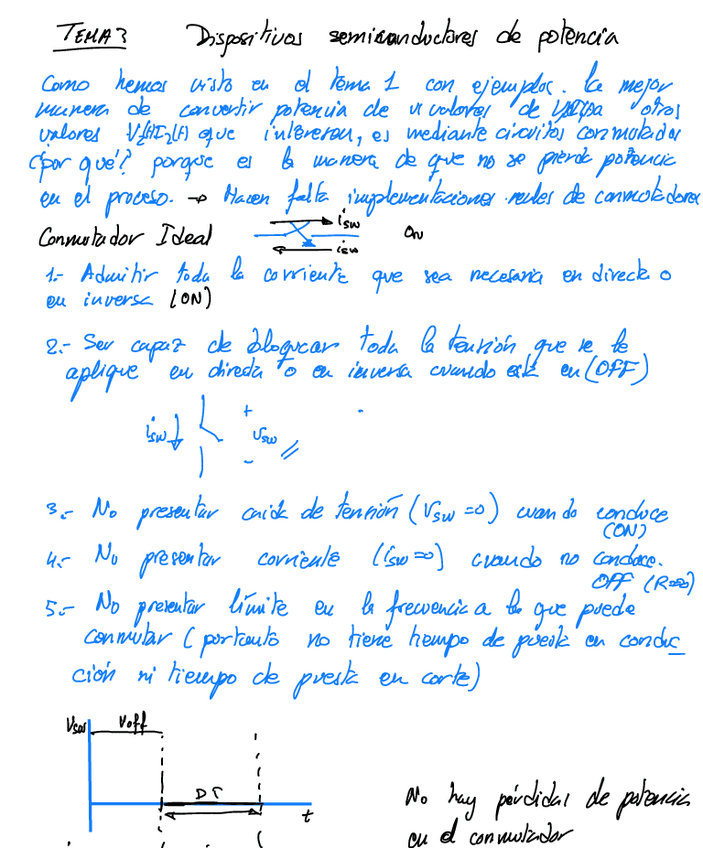 TEMA 3 Dispositivos semiconductores de potencia
Como hemos visto en el tema 1 con ejemplos. La mejor
manera de convertir potencia de v valores de otros
valores V₂(t)I₂(t) que interesan, es mediante circuitos conmutados
¿por qué? porque es la manera de que no se pierda potencia
en el proceso. → Hacen falta implementaciones reales de conmutadores
Conmutador Ideal isw ON
isw
1.- Admitir toda la corriente que sea necesaria en directa o
en inversa (ON)
2.- Ser capaz de bloquear toda la tensión que se le
aplique en directa o en inversa cuando está en (OFF)
isw + vsw -
3.- No presentar caida de tensión (Vsw=0) cuando conduce
(ON)
4.- No presentar corriente (isw=0) cuando no conduce.
OFF (R=∞)
5.- No presentar límite en la frecuencia a la que puede
conmutar (portanto no tiene tiempo de puesta en conduc
ción ni tiempo de puesta en corte)
Vsw Voff
DT
t
No hay pérdidas de potencia
en el conmutador